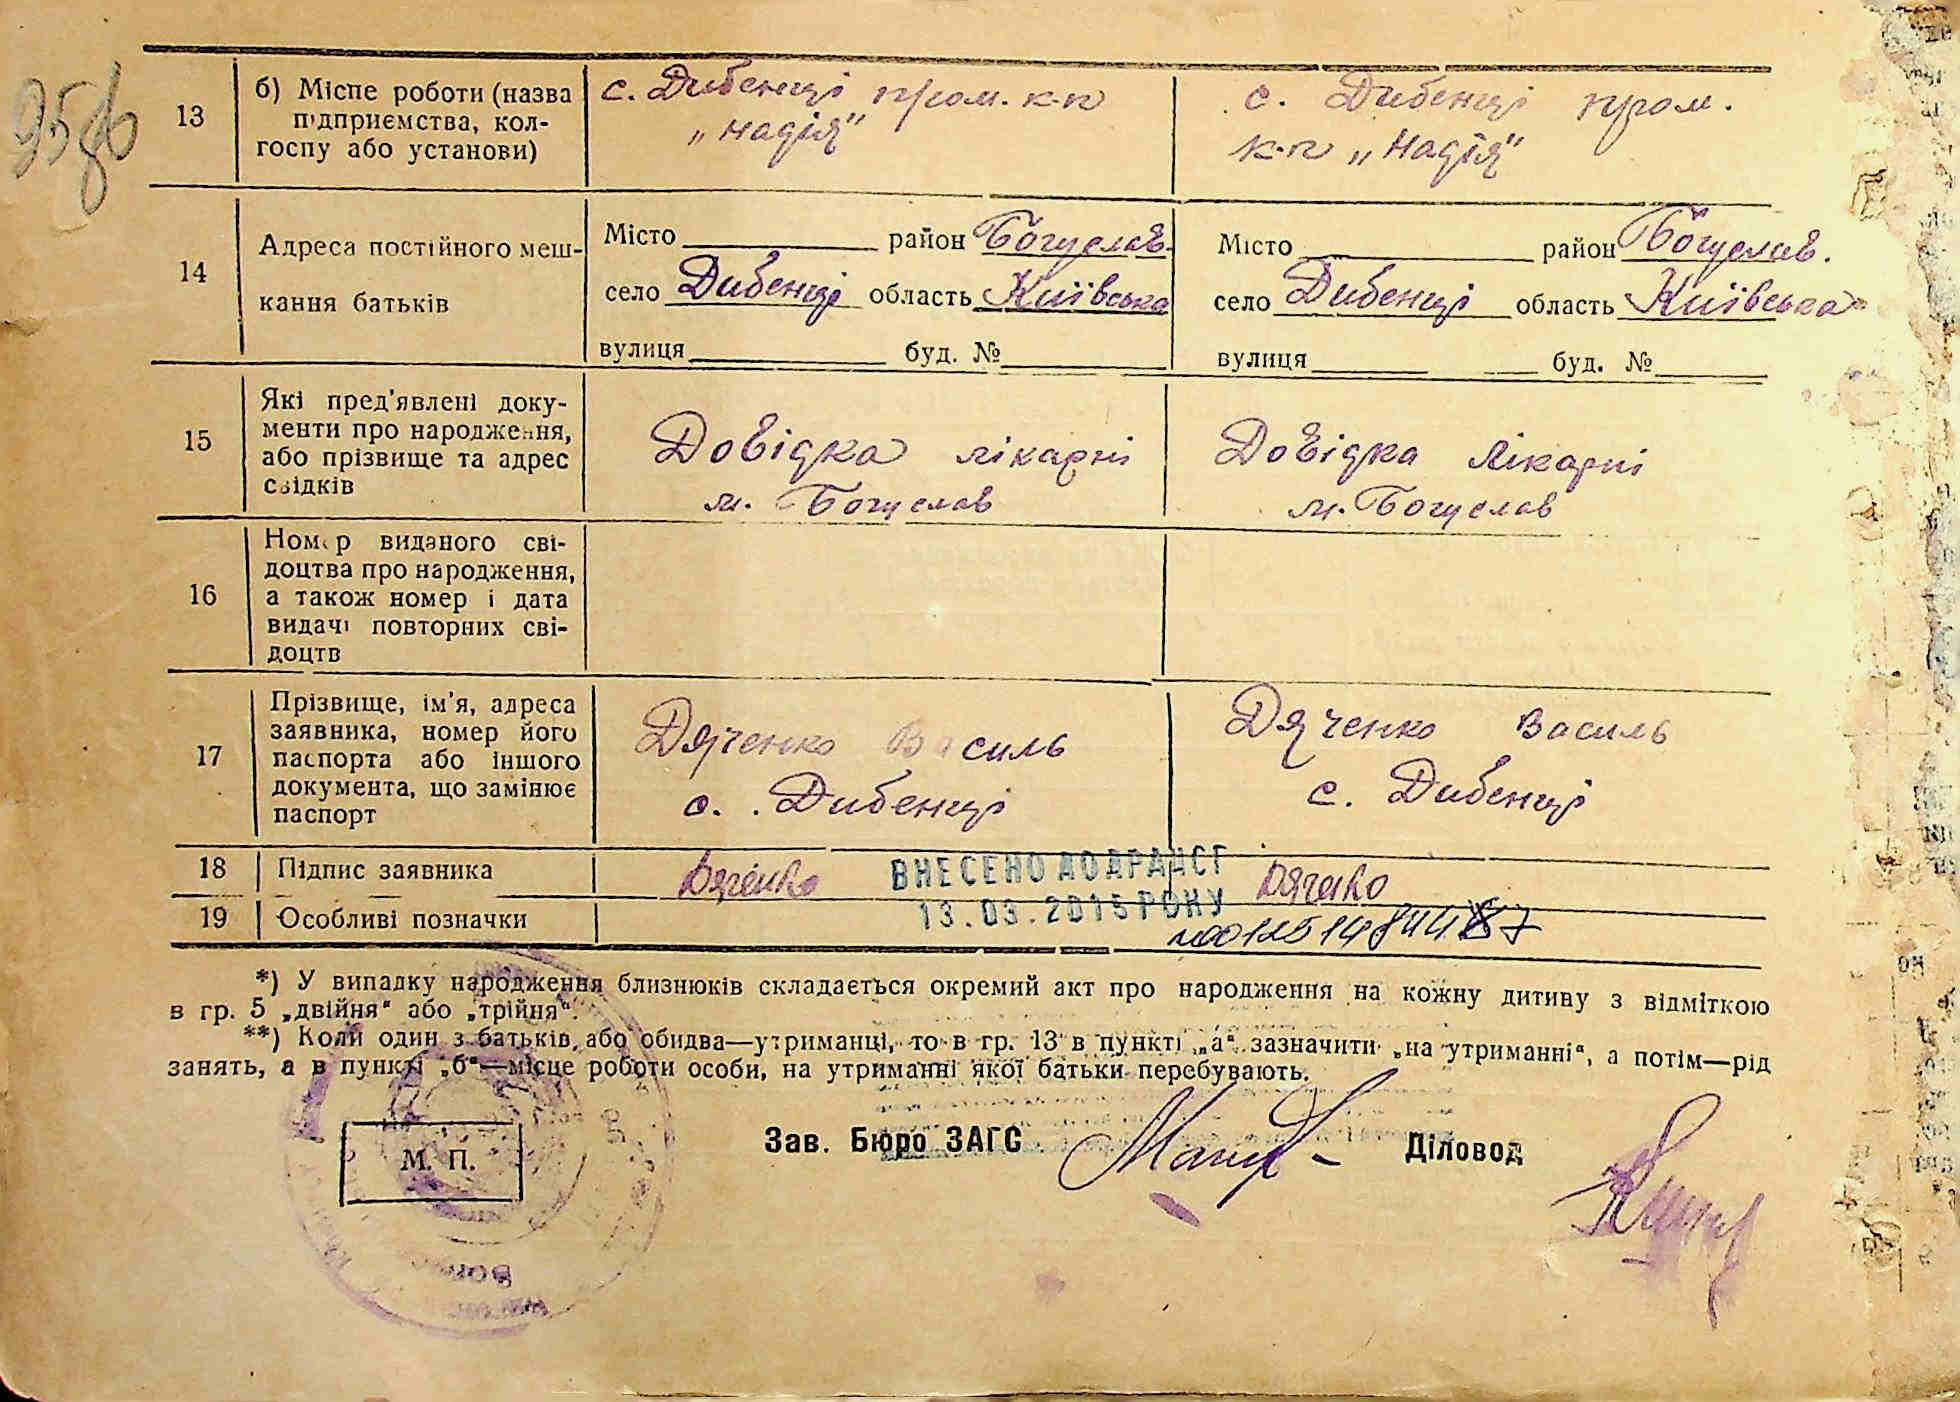 95зв
13
б) Місце роботи (назва підприємства, колгоспу або установи)
с. Дибенці пром. к-п
„Надія"
с. Дибенці пром.
к-п „Надія"
14
Адреса постійного мешкання батьків
Місто район Богуслав.
село Дибенці область Київська
вулиця буд. №
Місто район Богуслав.
село Дибенці область Київська
вулиця буд. №
15
Які пред'явлені документи про народження, або прізвище та адрес свідків
Довідка лікарні
м. Богуслав
Довідка лікарні
м. Богуслав
16
Номер виданого свідоцтва про народження, а також номер і дата видачі повторних свідоцтв
17
Прізвище, ім'я, адреса заявника, номер його паспорта або іншого документа, що замінює паспорт
Дяченко Василь
с. Дибенці
Дяченко Василь
с. Дибенці
18
Підпис заявника
Дяченко
Дяченко
ВНЕСЕНО ДО ДРАЦСГ
13.03.2015 РОКУ
19
Особливі позначки
*) У випадку народження близнюків складається окремий акт про народження на кожну дитину з відміткою
в гр. 5 „двійня" або „трійня".
**) Коли один з батьків, або обидва—утриманці, то в гр. 13 в пункті „а" зазначити „на утриманні", а потім—рід
занять, а в пункті „б"—місце роботи особи, на утриманні якої батьки перебувають.
М. П.
Зав. Бюро ЗАГС
Діловод